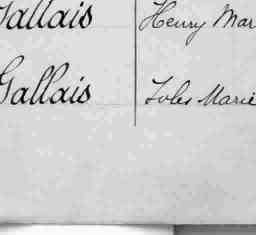 Gallais Henry Mar
Gallais Jules Marie